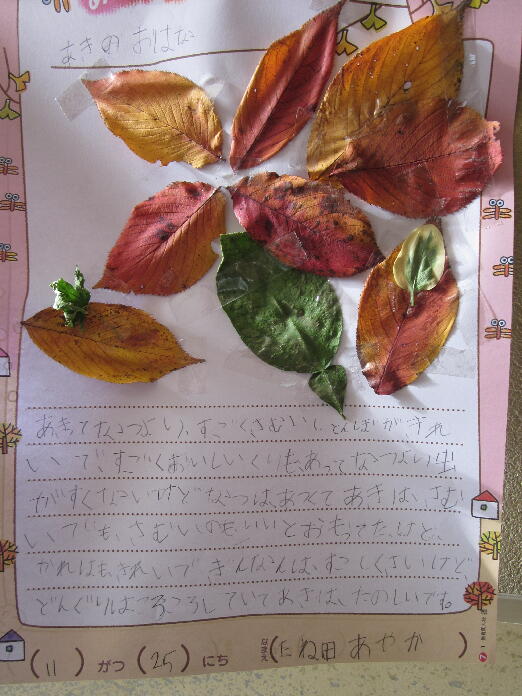 あきの おはな
あきてなつより、すごくさむいし、とんぼがきれ
いで、すごくおいしいくりも、あってなつより虫
がすくないけどなつは、あつくてあきは、さむ
いでも、さむいのもいいとおもってた、けど、
かれはも、きれいで ぎんなんは、すこしくさいけど
どんぐりはころころしていてあきは、たのしいです。
(11)がつ(25)にち なまえ( たね田 あやか )